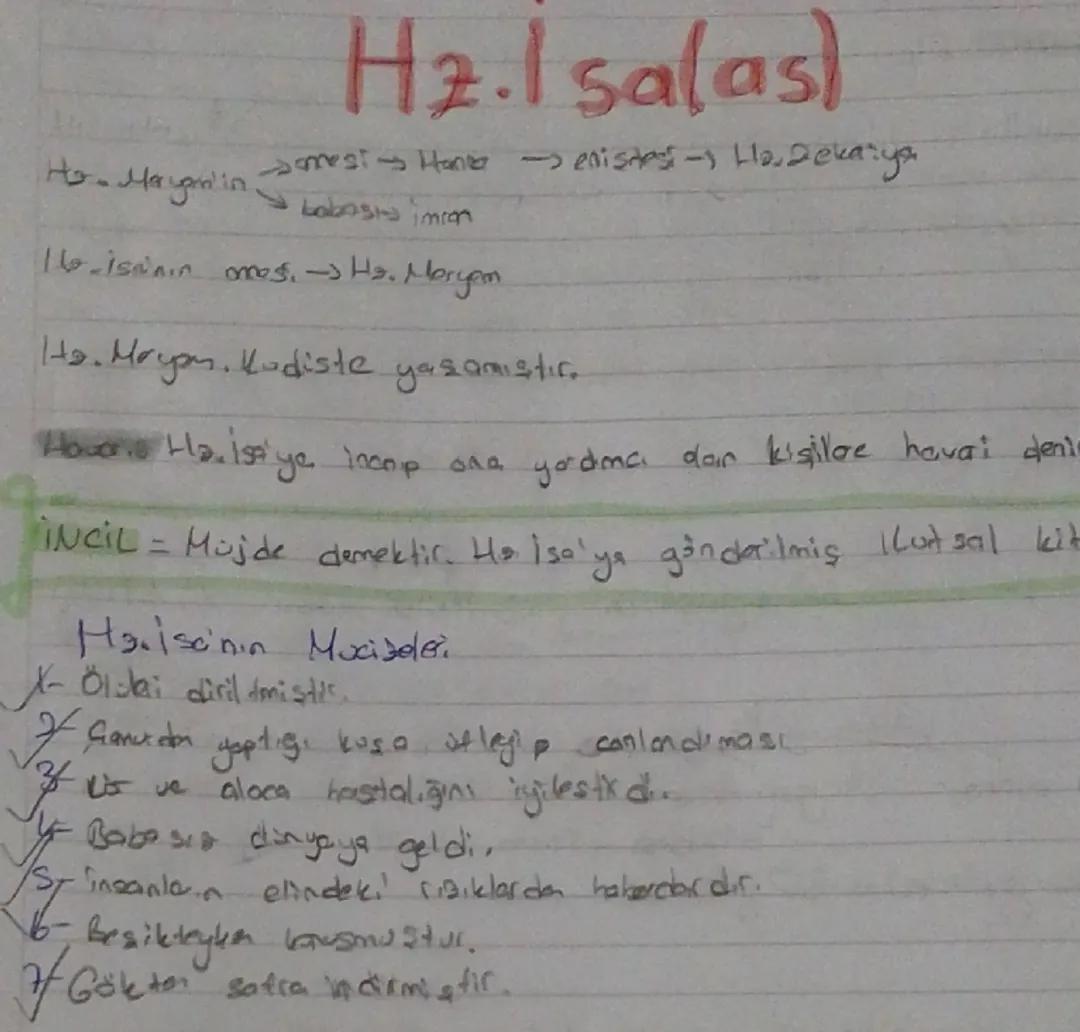 Hz. İsa(as)
Hz. Meryem'in → annesi → Hanne → eniştesi → Hz. Zekariya
→ babası → imran
Hz. isa'nın annesi → Hz. Meryem
Hz. Meryem. Kudüste yaşamıştır.
Havari Hz. İsa'ya inanıp ona yardımcı olan kişilere havari deni
İNCİL = Müjde demektir. Hz İsa'ya gönderilmiş Kutsal kit
Hz. İsa'nın Mucizeleri
1- Ölüleri diriltmiştir.
2- Çamurdan yaptığı kuşa üfleyip canlandırması
3- kör ve alaca hastalığını iyileştirdi.
4- Babasız dünyaya geldi.
5- insanların elindeki rızıklardan haberdardır.
6- Beşikteyken konuşmuştur.
7- Gökten sofra indirmiştir.